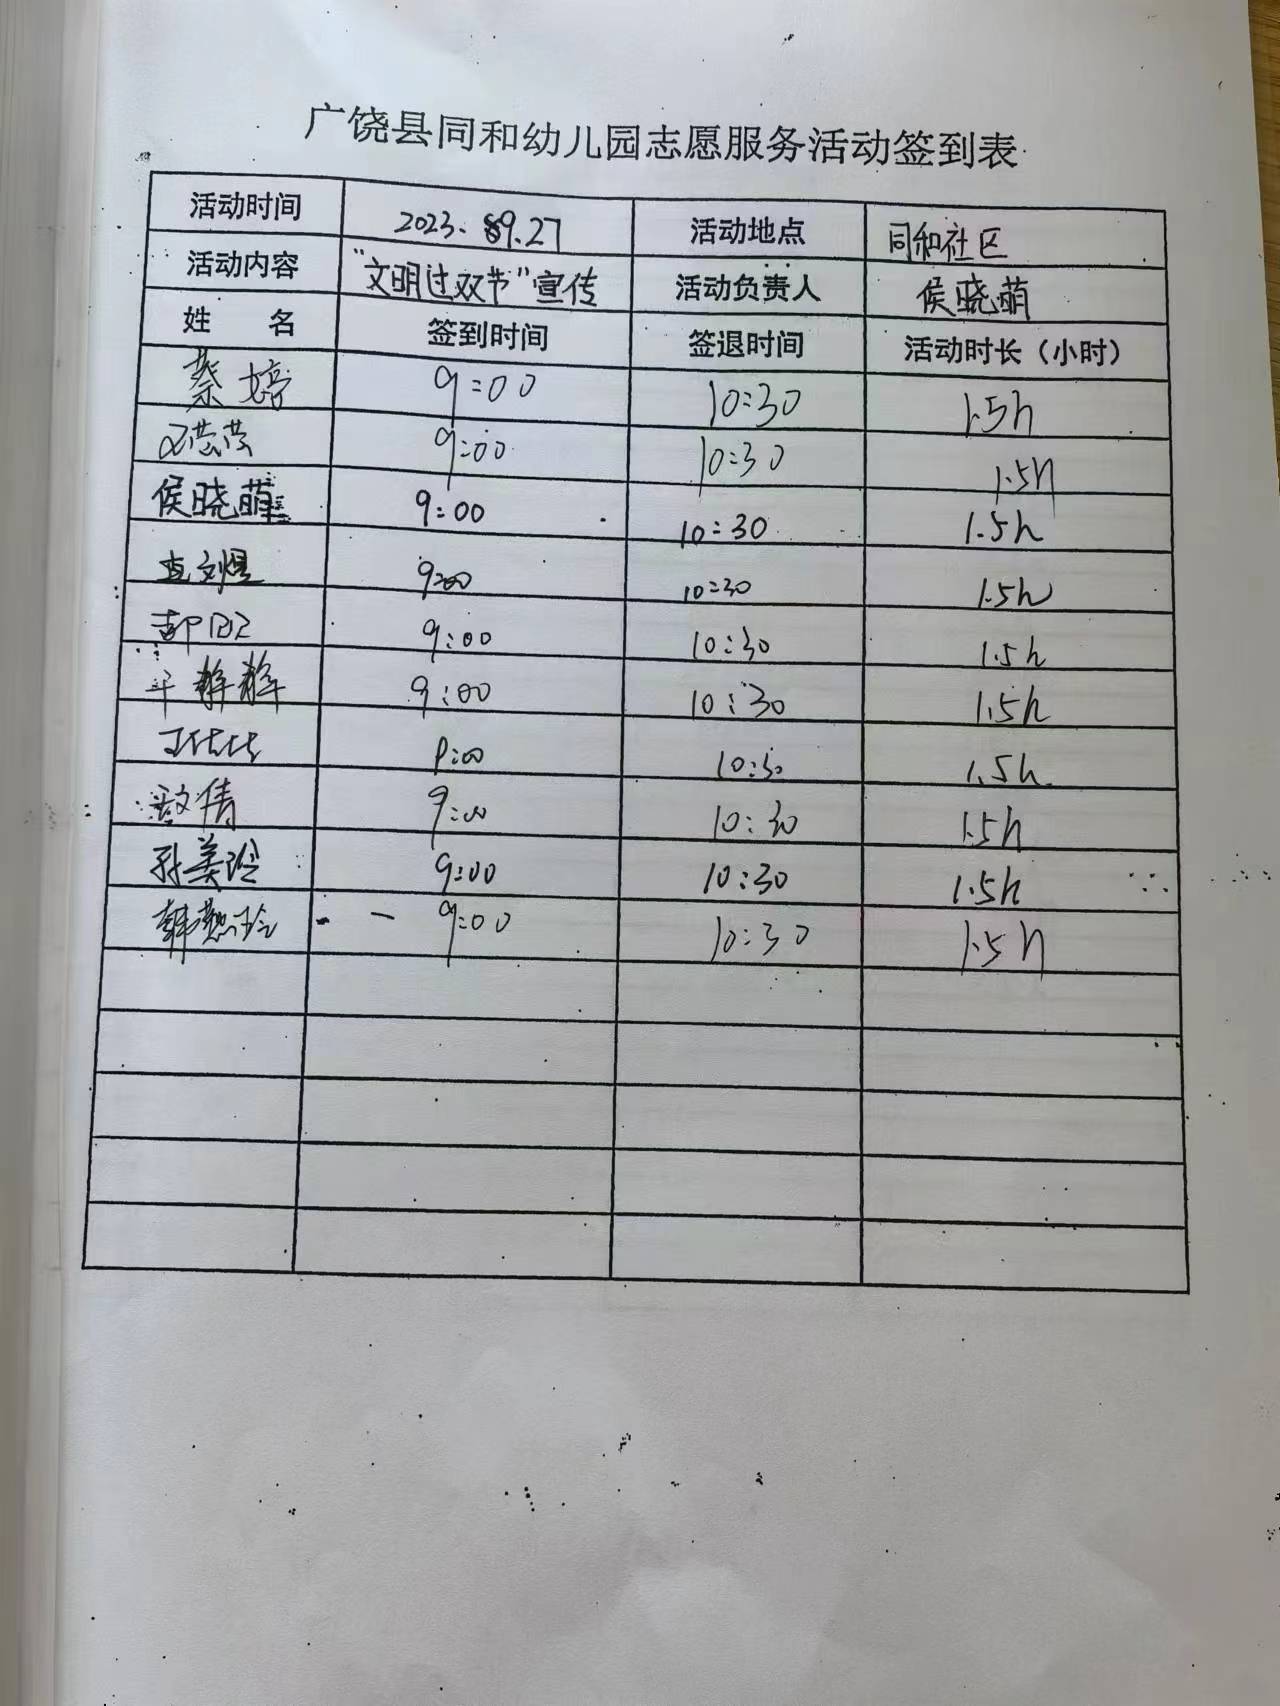 广饶县同和幼儿园志愿服务活动签到表
活动时间 2023.9.27 活动地点 同和社区
活动内容 "文明过双节"宣传 活动负责人 侯晓萌
姓 名 签到时间 签退时间 活动时长（小时）
蔡婷 9:00 10:30 1.5h
9:00 10:30 1.5h
侯晓萌 9:00 10:30 1.5h
9:00 10:30 1.5h
9:00 10:30 1.5h
9:00 10:30 1.5h
9:00 10:30 1.5h
倩 9:00 10:30 1.5h
孙美玲 9:00 10:30 1.5h
韩 9:00 10:30 1.5h